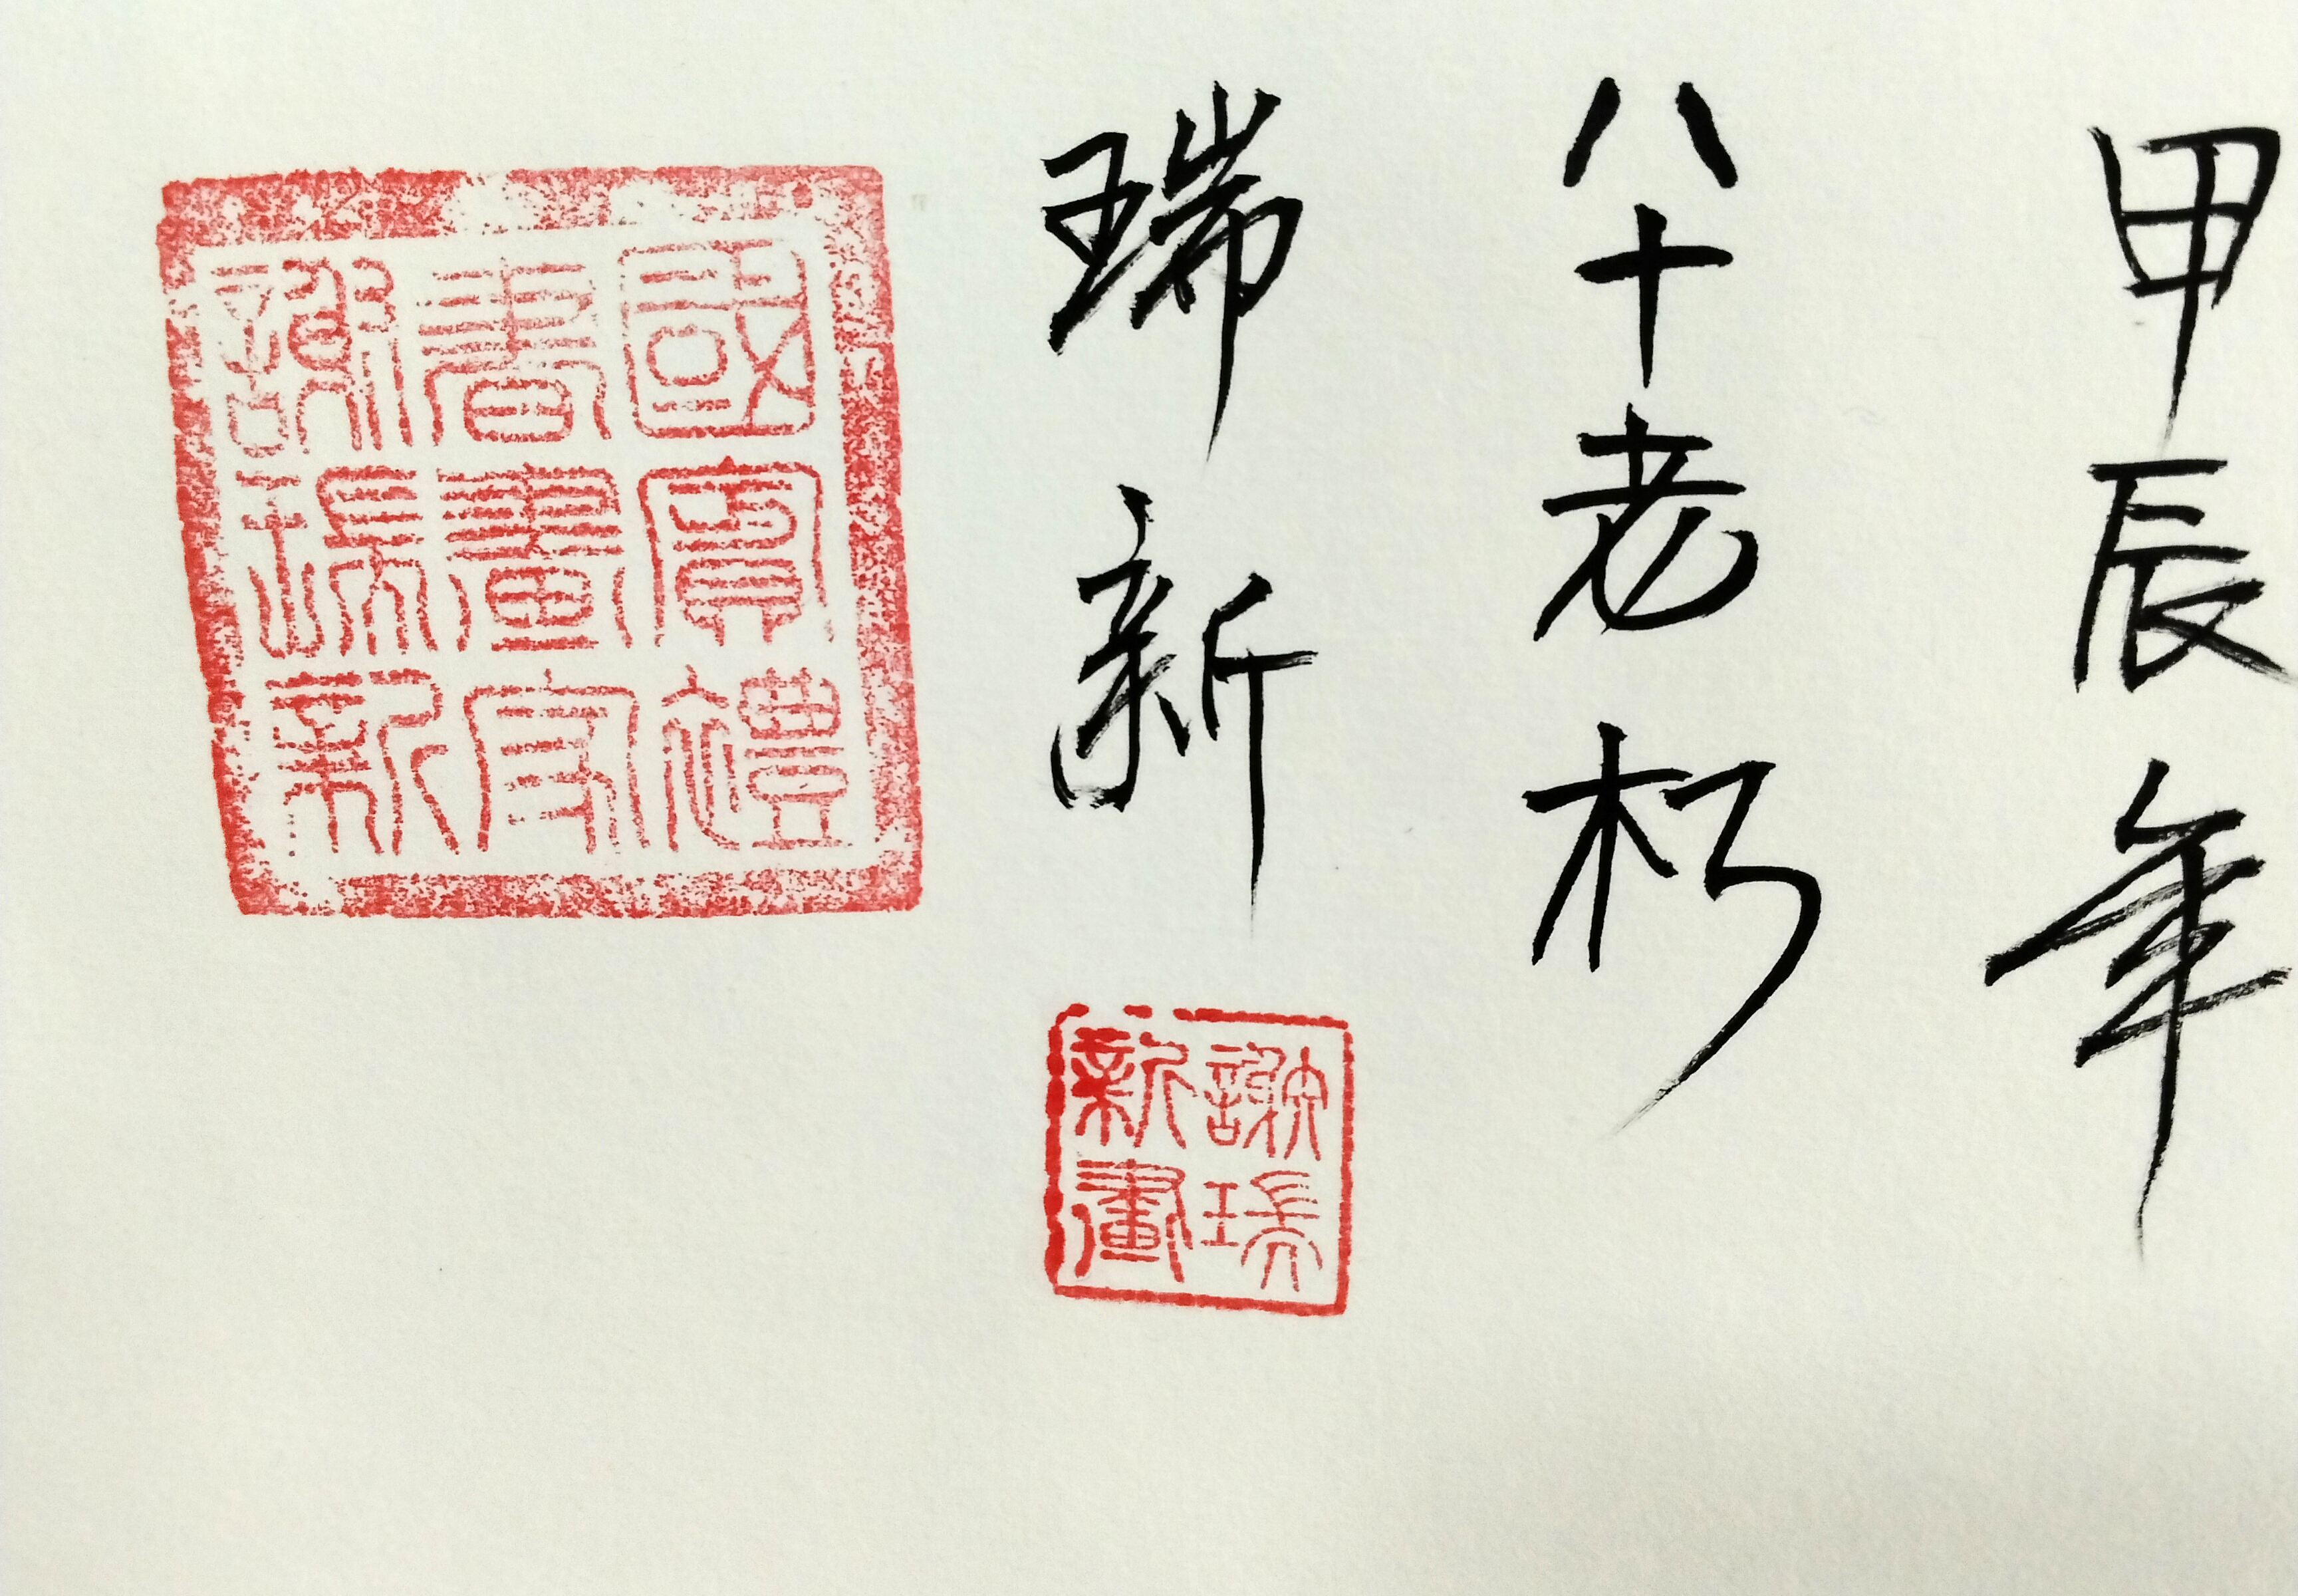 甲辰年
八十老朽
瑞新
謝瑞新畫
國賓禮
書畫家
謝瑞新